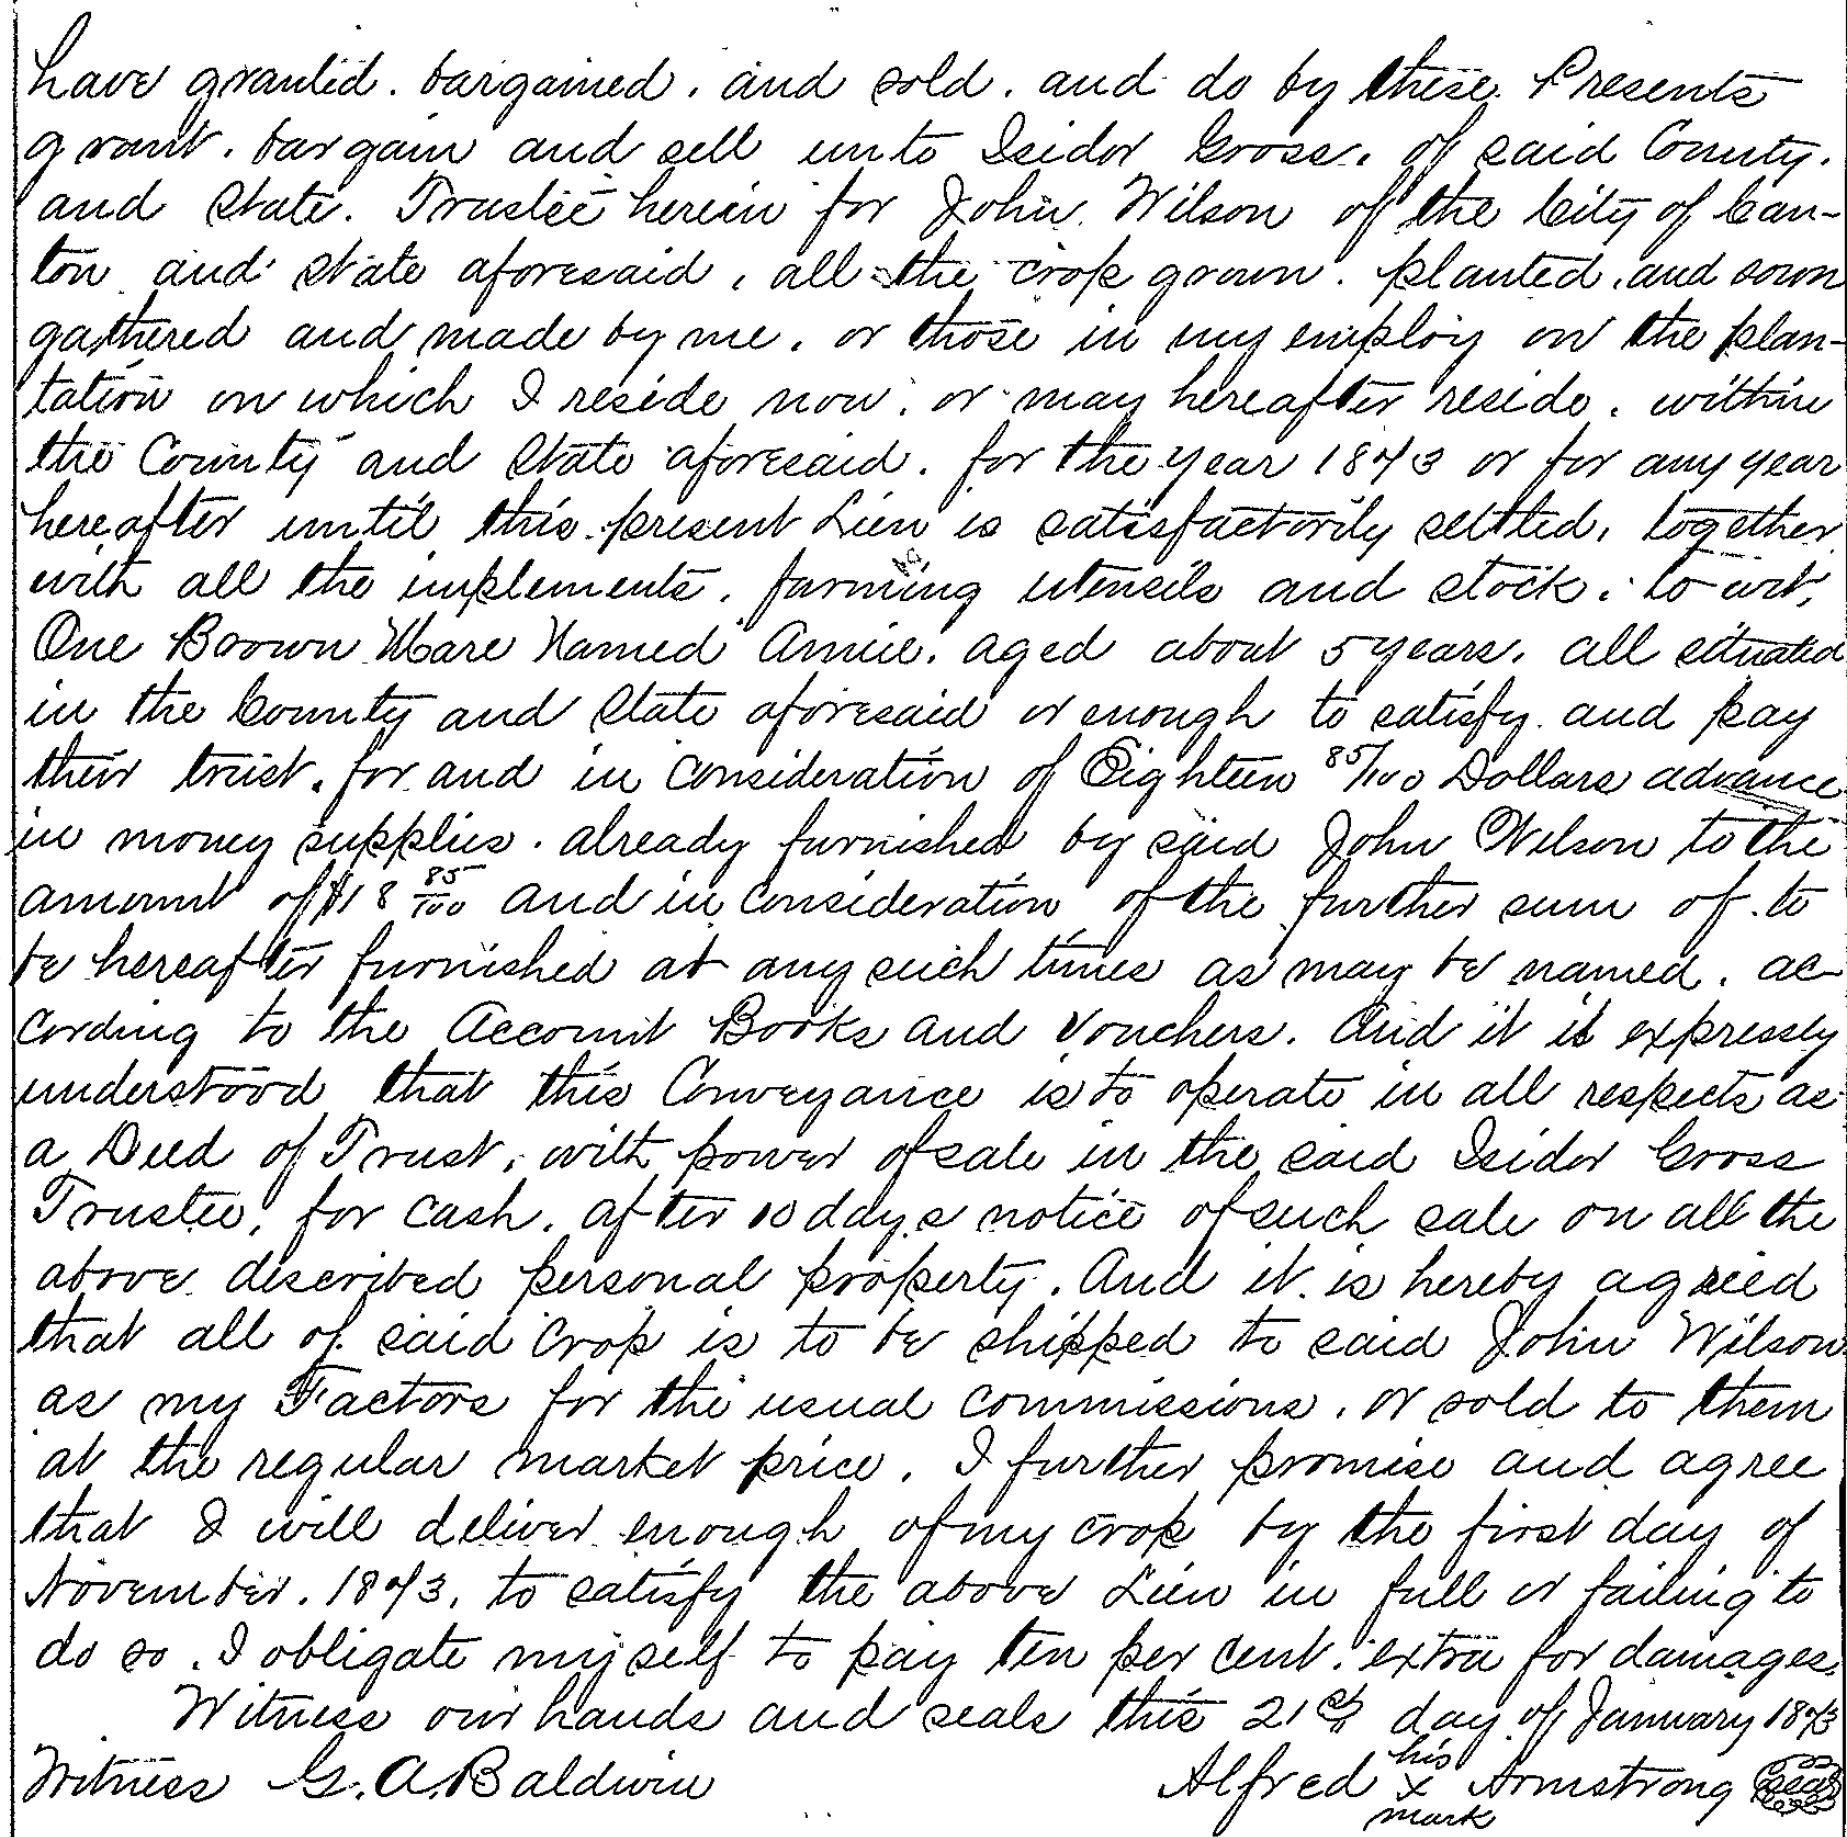 have granted. bargained. and sold. and do by these Presents
grant. bargain and sell unto Isidor Gross. of said County.
and State. Trustee herein for John Wilson of the City of Can-
ton and State aforesaid, all the crop grown. planted, and sown
gathered and made by me. or those in my employ on the plan-
tation on which I reside now. or may hereafter reside. within
the County and State aforesaid. for the year 1873 or for any year
hereafter until this present Lien is satisfactorily settled, together
with all the implements. farming utensils and stock: to wit,
One Brown Mare Named Annie. aged about 5 years. all situated
in the County and State aforesaid or enough to satisfy and pay
their trust. for and in consideration of Eighteen 85/100 Dollars advance
in money supplies. already furnished by said John Wilson to the
amount of $18 85/100 and in consideration of the further sum of to
be hereafter furnished at any such times as may be named. ac-
cording to the Account Books and Vouchers. And it is expressly
understood that this Conveyance is to operate in all respects as
a Deed of Trust, with power of sale in the said Isidor Gross
Trustee, for cash. after 10 days notice of such sale on all the
above described personal property. And it is hereby agreed
that all of said Crop is to be shipped to said John Wilson
as my Factors for the usual commissions. or sold to them
at the regular market price. I further promise and agree
that I will deliver enough of my crop by the first day of
November. 1873. to satisfy the above Lien in full or failing to
do so. I obligate myself to pay ten per cent. extra for damages.
Witness our hands and seals this 21st day of January 1873
his
Witness G. A. Baldwin Alfred x Armstrong seal
mark